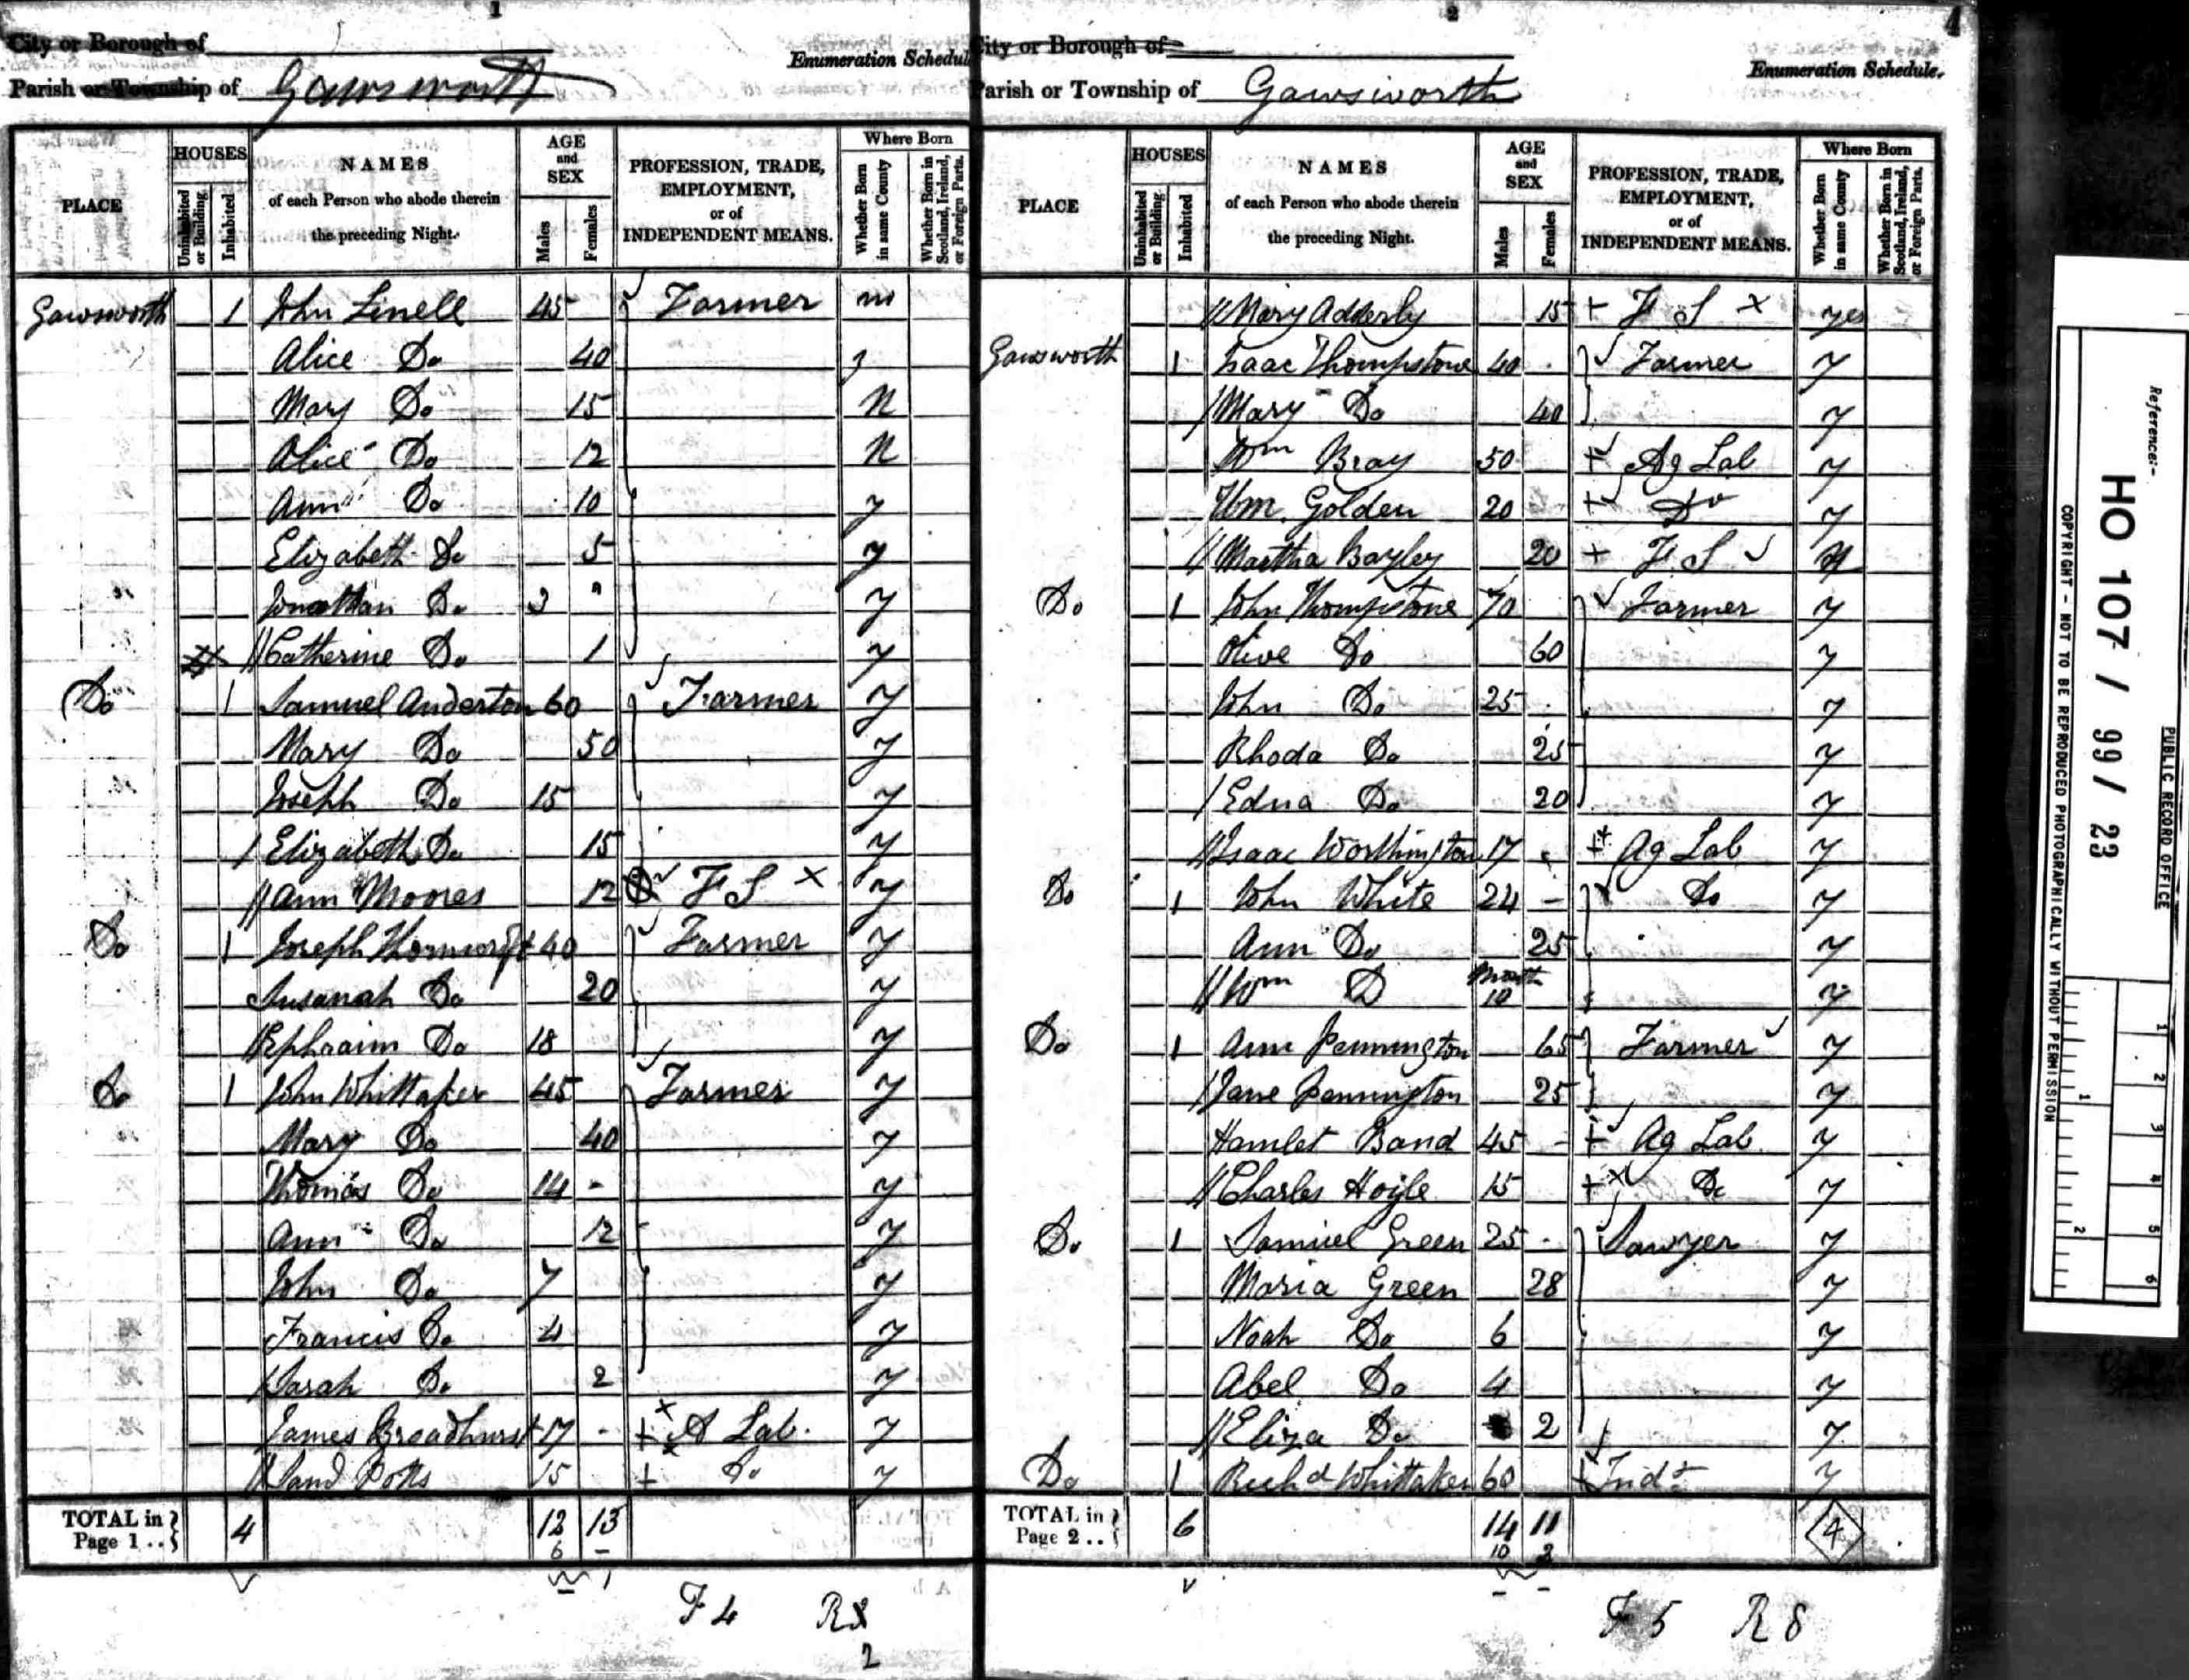 1
City or Borough of
Enumeration Schedule
Parish or Township of Gawsworth
PLACE
HOUSES
Uninhabited or Building
Inhabited
NAMES
of each Person who abode therein
the preceding Night.
AGE and SEX
Males
Females
PROFESSION, TRADE,
EMPLOYMENT,
or of
INDEPENDENT MEANS.
Where Born
Whether Born in same County
Whether Born in Scotland, Ireland, or Foreign Parts.
Gawsworth 1 John Linell 45 Farmer
Alice Do 40 y
Mary Do 15 N
Alice Do 12 N
Ann Do 10 y
Elizabeth Do 5 y
Jonathan Do 3 y
Catherine Do 1 y
Do 1 Samuel Anderton 60 Farmer y
Mary Do 50 y
Joseph Do 15 y
Elizabeth Do 15 y
Ann Moores 12 F S y
Do 1 Joseph 40 Farmer y
Susanah Do 20 y
Ephraim Do 18 y
Do 1 John Whittaker 45 Farmer y
Mary Do 40 y
Thomas Do 14 y
Ann Do 12 y
John Do 7 y
Francis Do 4 y
Sarah Do 2 y
James Broadhurst 17 A Lab. y
Potts 15 Do y
TOTAL in Page 1 .. 4 12 13
6
F 4 R
2
2
4
City or Borough of
Enumeration Schedule.
Parish or Township of Gawsworth
PLACE
HOUSES
Uninhabited or Building
Inhabited
NAMES
of each Person who abode therein
the preceding Night.
AGE and SEX
Males
Females
PROFESSION, TRADE,
EMPLOYMENT,
or of
INDEPENDENT MEANS.
Where Born
Whether Born in same County
Whether Born in Scotland, Ireland, or Foreign Parts.
Mary Adderly 15 F S yes
Gawsworth 1 Isaac Thompstone 40 Farmer y
Mary Do 40 y
Wm Bray 50 Ag Lab y
Wm. Golden 20 Do y
Martha Bayley 20 F S N
Do 1 John Thompstone 70 Farmer y
Olive Do 60 y
John Do 25 y
Rhoda Do 25 y
Edna Do 20 y
Isaac Worthington 17 Ag Lab y
Do 1 John White 24 Do y
Ann Do 25 y
Wm D Month 10 y
Do 1 Ann Pennington 65 Farmer y
Jane Pennington 25 y
Hamlet Band 45 Ag Lab. y
Charles Hoyle 15 Do y
Do 1 Samuel Green 25 Sawyer y
Maria Green 28 y
Noah Do 6 y
Abel Do 4 y
Eliza Do 2 y
Do 1 Richd Whittaker 60 Indt y
TOTAL in Page 2 .. 6 14 11 4
10 2
F 5 R 8
Reference:-
HO 107 / 99 / 23
PUBLIC RECORD OFFICE
COPYRIGHT - NOT TO BE REPRODUCED PHOTOGRAPHICALLY WITHOUT PERMISSION
1 2
1 2 3 4 5 6